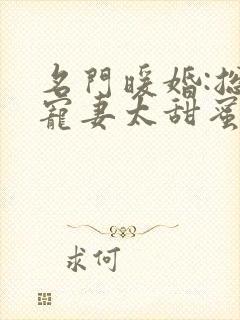 名門暖婚:
寵妻太甜蜜
求何